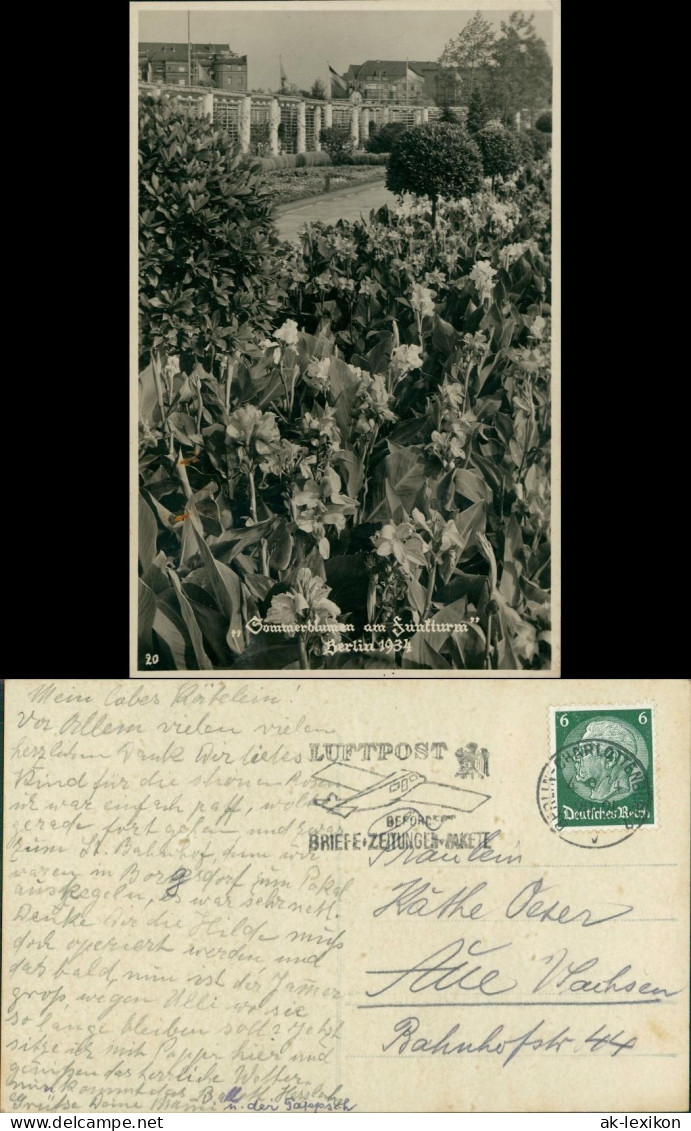 "Sommerblumen am Funkturm"
Berlin 1934
20
Mein liebes Kätelein!
Vor Allem vielen vielen
herzlichen Dank Dir liebes
Kind für die schönen Rosen
ich war einfach paff, wollte
gerade fort gehen und zwar
zum St. Bahnhof, denn wir
waren in zum Pokal
auskegeln, es war sehr nett.
Denke Dir die Hilde muß
doch operiert werden und
das bald, nun ist der Jammer
groß, wegen Ulli wo sie
so lange bleiben soll? Jetzt
sitze ich mit Pappi hier und
genießen das herrliche Wetter
nun kommt der
Grüße Deine Mami u. der Pappsch
LUFTPOST
BEFÖRDERT
BRIEFE·ZEITUNGEN·PAKETE
6 6
Deutsches Reich
BERLIN-CHARLOTTENBURG
Fräulein
Käthe Oeser
Aue i/Sachsen
Bahnhofstr 44
ak-lexikon